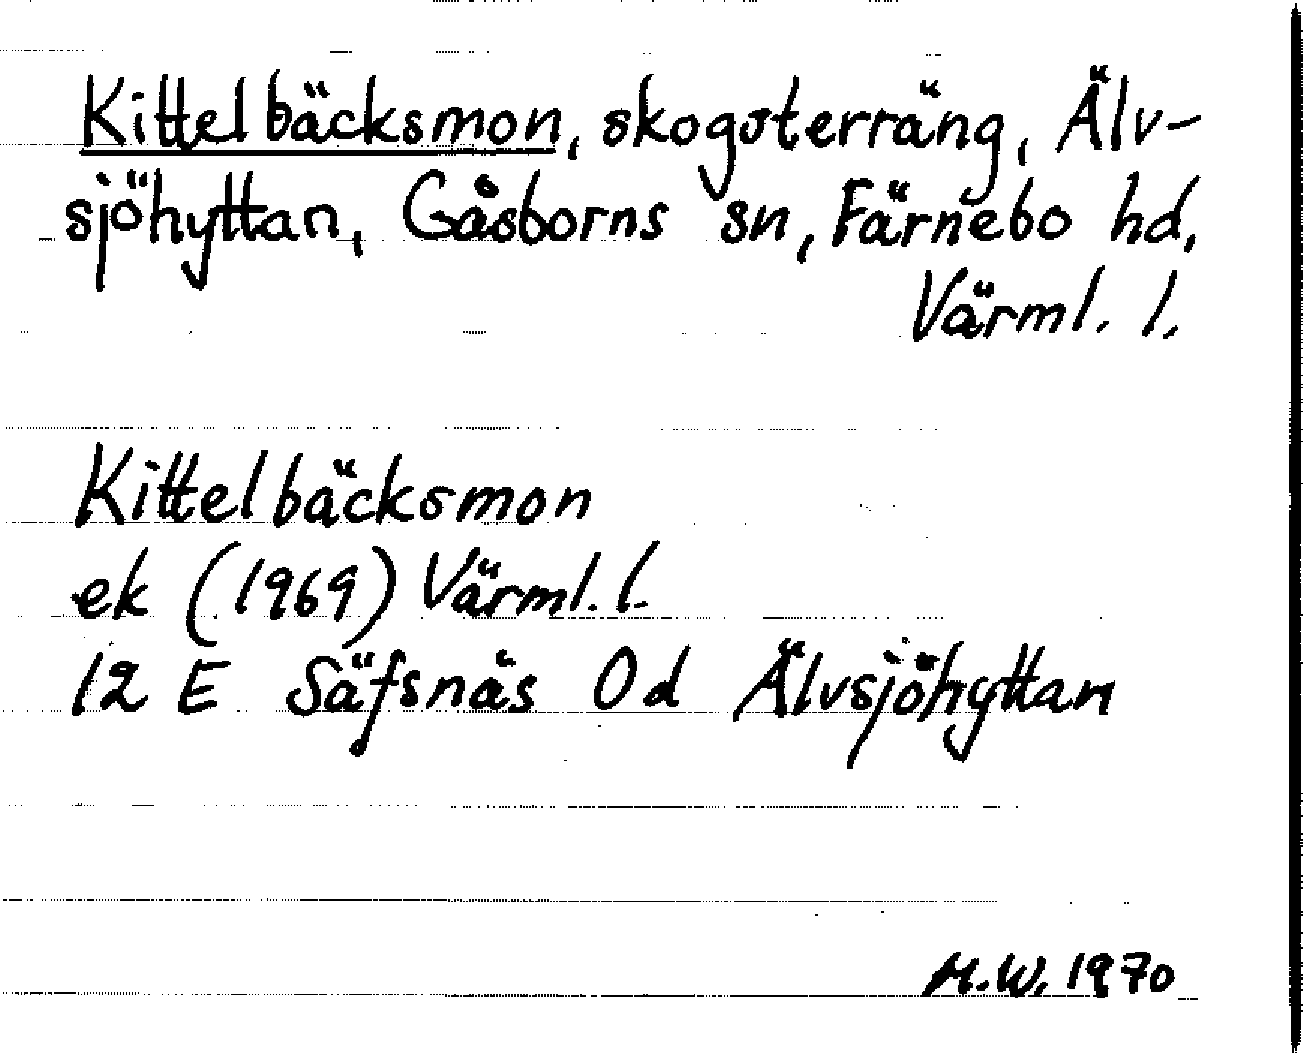 Kittelbäcksmon, skogsterräng, Älv-
sjöhyttan, Gåsborns sn, Färnebo hd,
Värml. l.
Kittelbäcksmon
ek (1969) Värml. l.
12 E Säfsnäs 0d Älvsjöhyttan
M.W. 1970